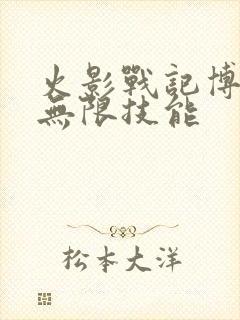 火影戰記博
無限技能
松本大洋